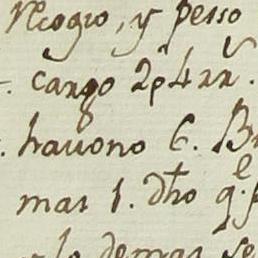 Neogio, y pesso
cargo 2p 4rr.
havono 6. B
mas 1. dho q.e
lo demas se